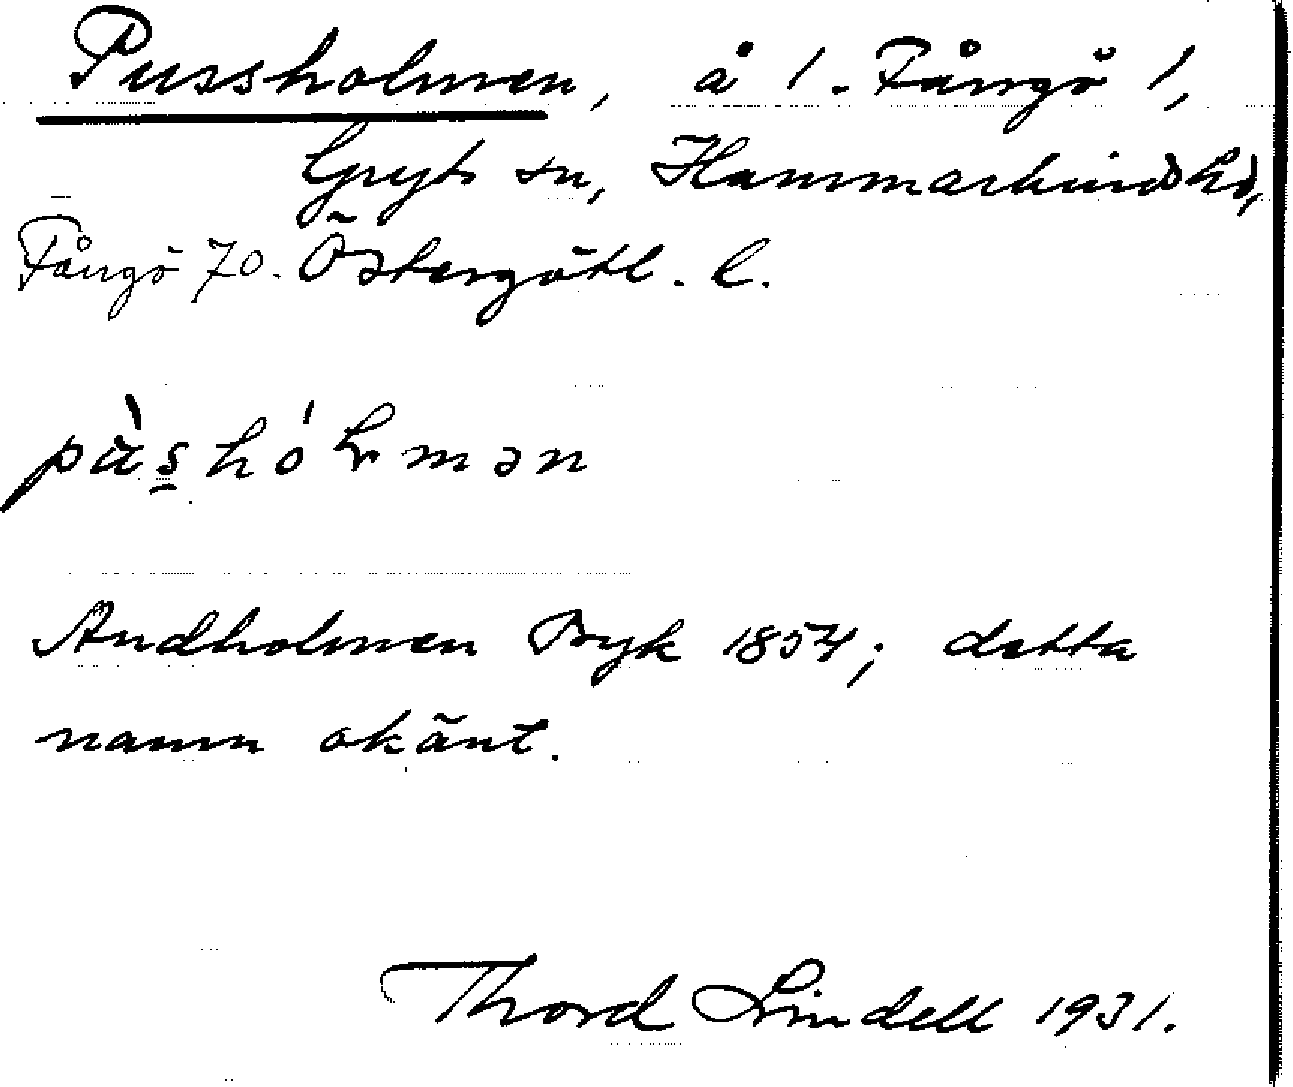 Pussholmen, å 1. Fångö 1,
Gryts sn, Hammarkinds hd,
Fångö 70. Östergötl. l.
Andholmen Byk 1854; detta
namn okänt.
Thord Lindell 1931.